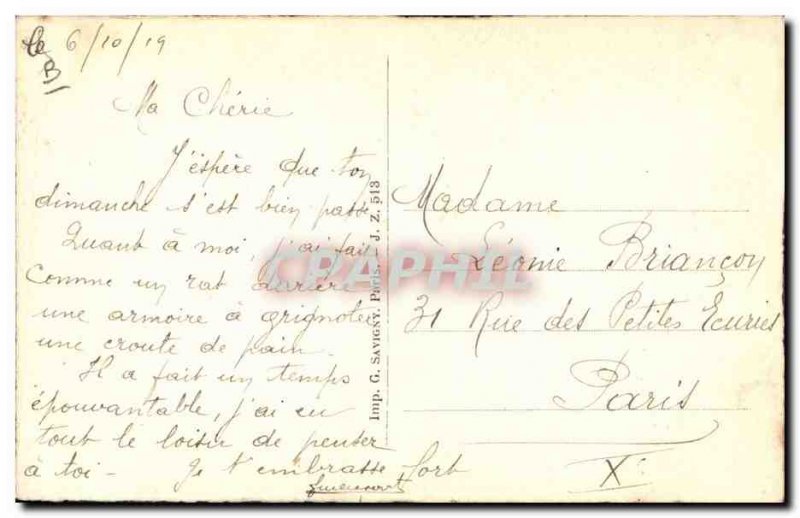 le 6/10/19
Ma Chérie
J'espère que ton
dimanche s'est bien passé
Quant à moi, j'ai fait
comme un rat derrière
une armoire à grignoter
une croute de pain.
Il a fait un temps
épouvantable, j'ai eu
tout le loisir de penser
à toi - Je t'embrasse fort
Imp. G. SAVIGNY, Paris. - J. Z. 513
Madame
Léonie Briançon
31 Rue des Petites Ecuries
Paris
Xe
CPAPHIL